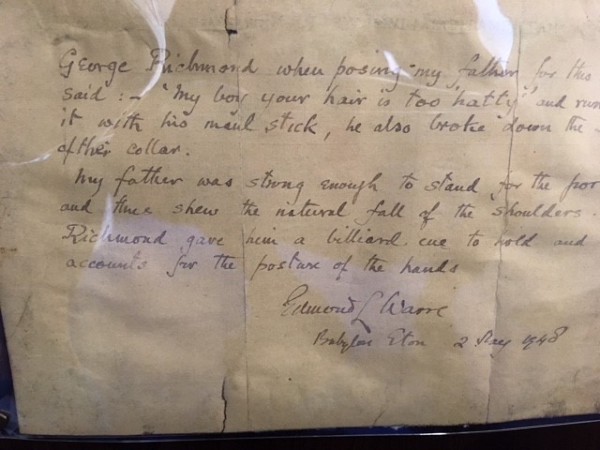 George Richmond when posing my father for this
said :- "My boy your hair is too 'natty'" and
it with his maul stick, he also broke down the
of the collar.
My father was strong enough to stand for the
and thus shew the natural fall of the shoulders.
Richmond gave him a billiard cue to hold and
accounts for the posture of the hands
Edmond L Warre
Eton 2 May 1948